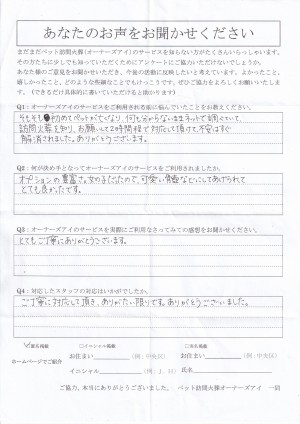 あなたのお声をお聞かせください
まだまだペット訪問火葬(オーナーズアイ)のサービスを知らない方がたくさんいらっしゃいます。
その方たちに少しでも知っていただくためにアンケートにご協力いただけないでしょうか。
あなた様のご意見をお聞かせいただき、今後の活動に反映したいと考えています。よかったこと、
嬉しかったこと、どのような些細なことでもけっこうです。ぜひご協力をよろしくお願いいたします。
(できるだけ具体的に書いていただけると助かります)
Q1：オーナーズアイのサービスをご利用される前に悩んでいたことをお教えください。
そもそも初めてペットが亡くなり、何も分からないままネットで調べていて、
訪問火葬を知り、お願いして2時間程で対応して頂けて不安はすぐ
解消されました。ありがとうございます。
Q2：何が決め手となってオーナーズアイのサービスをご利用されましたか。
オプションの豊富さ。女の子だったので、可愛い骨壷などにしてあげられて
とても良かったです。
Q3：オーナーズアイのサービスを実際にご利用なさってみての感想をお聞かせください。
とてもご丁寧にありがとうございます。
Q4：対応したスタッフの対応はいかがでしたか。
ご丁寧に対応して頂き、ありがたい限りです。ありがとうございました。
ホームページでご紹介
匿名掲載
□イニシャル掲載
□実名掲載
お住まい
(例：中央区)
お住まい
(例：中央区)
イニシャル
(例：J.H)
氏名
ご協力、本当にありがとうございました。 ペット訪問火葬オーナーズアイ 一同